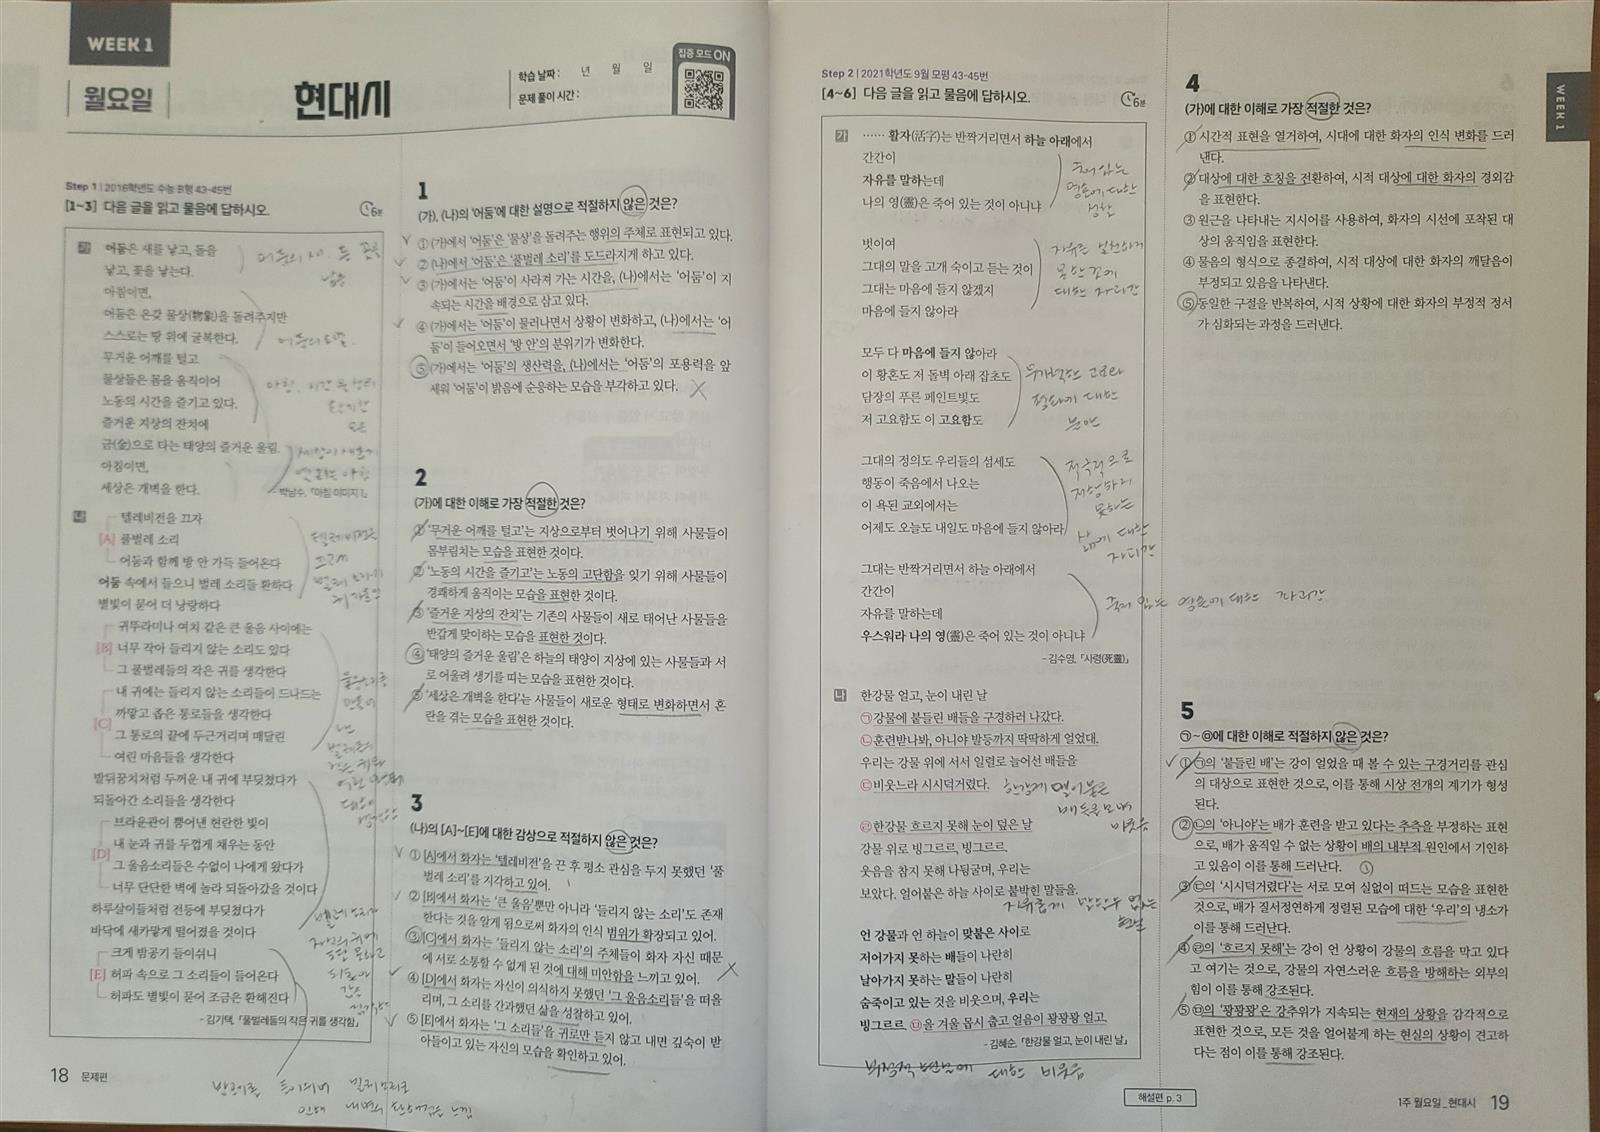 WEEK 1
월요일
현대시
학습 날짜 : 년 월 일
문제 풀이 시간 :
집중 모드 ON
Step 1 | 2016학년도 수능 B형 43-45번
[1~3] 다음 글을 읽고 물음에 답하시오.
6분
가
어둠은 새를 낳고, 돌을
낳고, 꽃을 낳는다.
아침이면,
어둠은 온갖 물상(物象)을 돌려주지만
스스로는 땅 위에 굴복한다.
무거운 어깨를 털고
물상들은 몸을 움직이어
노동의 시간을 즐기고 있다.
즐거운 지상의 잔치에
금(金)으로 타는 태양의 즐거운 울림.
아침이면,
세상은 개벽을 한다.
- 박남수, 「아침 이미지 1」
어둠의 새, 돌 꽃을
낳음
나
텔레비전을 끄자
[A] 풀벌레 소리
어둠과 함께 방 안 가득 들어온다
어둠 속에서 들으니 벌레 소리들 환하다
별빛이 묻어 더 낭랑하다
귀뚜라미나 여치 같은 큰 울음 사이에는
[B] 너무 작아 들리지 않는 소리도 있다
그 풀벌레들의 작은 귀를 생각한다
내 귀에는 들리지 않는 소리들이 드나드는
까맣고 좁은 통로들을 생각한다
[C] 그 통로의 끝에 두근거리며 매달린
여린 마음들을 생각한다
발뒤꿈치처럼 두꺼운 내 귀에 부딪쳤다가
되돌아간 소리들을 생각한다
브라운관이 뿜어낸 현란한 빛이
내 눈과 귀를 두껍게 채우는 동안
[D] 그 울음소리들은 수없이 나에게 왔다가
너무 단단한 벽에 놀라 되돌아갔을 것이다
하루살이들처럼 전등에 부딪쳤다가
바닥에 새카맣게 떨어졌을 것이다
크게 밤공기 들이쉬니
[E] 허파 속으로 그 소리들이 들어온다
허파도 별빛이 묻어 조금은 환해진다
- 김기택, 「풀벌레들의 작은 귀를 생각함」
18 문제편
1
(가), (나)의 '어둠'에 대한 설명으로 적절하지 않은 것은?
① (가)에서 '어둠'은 '물상'을 돌려주는 행위의 주체로 표현되고 있다.
② (나)에서 '어둠'은 '풀벌레 소리'를 도드라지게 하고 있다.
③ (가)에서는 '어둠'이 사라져 가는 시간을, (나)에서는 '어둠'이 지
속되는 시간을 배경으로 삼고 있다.
④ (가)에서는 '어둠'이 물러나면서 상황이 변화하고, (나)에서는 '어
둠'이 들어오면서 '방 안'의 분위기가 변화한다.
⑤ (가)에서는 '어둠'의 생산력을, (나)에서는 '어둠'의 포용력을 앞
세워 '어둠'이 밝음에 순응하는 모습을 부각하고 있다.
2
(가)에 대한 이해로 가장 적절한 것은?
① '무거운 어깨를 털고'는 지상으로부터 벗어나기 위해 사물들이
몸부림치는 모습을 표현한 것이다.
② '노동의 시간을 즐기고'는 노동의 고단함을 잊기 위해 사물들이
경쾌하게 움직이는 모습을 표현한 것이다.
③ '즐거운 지상의 잔치'는 기존의 사물들이 새로 태어난 사물들을
반갑게 맞이하는 모습을 표현한 것이다.
④ '태양의 즐거운 울림'은 하늘의 태양이 지상에 있는 사물들과 서
로 어울려 생기를 띠는 모습을 표현한 것이다.
⑤ '세상은 개벽을 한다'는 사물들이 새로운 형태로 변화하면서 혼
란을 겪는 모습을 표현한 것이다.
3
(나)의 [A]~[E]에 대한 감상으로 적절하지 않은 것은?
① [A]에서 화자는 '텔레비전'을 끈 후 평소 관심을 두지 못했던 '풀
벌레 소리'를 지각하고 있어.
② [B]에서 화자는 '큰 울음'뿐만 아니라 '들리지 않는 소리'도 존재
한다는 것을 알게 됨으로써 화자의 인식 범위가 확장되고 있어.
③ [C]에서 화자는 '들리지 않는 소리'의 주체들이 화자 자신 때문
에 서로 소통할 수 없게 된 것에 대해 미안함을 느끼고 있어.
④ [D]에서 화자는 자신이 의식하지 못했던 '그 울음소리들'을 떠올
리며, 그 소리를 간과했던 삶을 성찰하고 있어.
⑤ [E]에서 화자는 '그 소리들'을 귀로만 듣지 않고 내면 깊숙이 받
아들이고 있는 자신의 모습을 확인하고 있어.
Step 2 | 2021학년도 9월 모평 43-45번
[4~6] 다음 글을 읽고 물음에 답하시오.
6분
가
…… 활자(活字)는 반짝거리면서 하늘 아래에서
간간이
자유를 말하는데
나의 영(靈)은 죽어 있는 것이 아니냐
죽어 있는
영혼에 대한
성찰
벗이여
그대의 말을 고개 숙이고 듣는 것이
그대는 마음에 들지 않겠지
마음에 들지 않아라
자유를 실천하지
못한 것에
대한 자괴감
모두 다 마음에 들지 않아라
이 황혼도 저 돌벽 아래 잡초도
담장의 푸른 페인트빛도
저 고요함도 이 고요함도
그대의 정의도 우리들의 섬세도
행동이 죽음에서 나오는
이 욕된 교외에서는
어제도 오늘도 내일도 마음에 들지 않아라
적극적으로
저항하지
못하는
삶에 대한
자괴감
그대는 반짝거리면서 하늘 아래에서
간간이
자유를 말하는데
우스워라 나의 영(靈)은 죽어 있는 것이 아니냐
- 김수영, 「사령(死靈)」
죽어 있는 영혼에 대한 자괴감
나
한강물 얼고, 눈이 내린 날
㉠강물에 붙들린 배들을 구경하러 나갔다.
㉡훈련받나봐, 아니야 발등까지 딱딱하게 얼었대.
우리는 강물 위에 서서 일렬로 늘어선 배들을
㉢비웃느라 시시덕거렸다.
한강에 얼어붙은
배들을 보며
비웃음
㉣한강물 흐르지 못해 눈이 덮은 날
강물 위로 빙그르르, 빙그르르
웃음을 참지 못해 나뒹굴며, 우리는
보았다. 얼어붙은 하늘 사이로 붙박힌 말들을.
언 강물과 언 하늘이 맞붙은 사이로
저어가지 못하는 배들이 나란히
날아가지 못하는 말들이 나란히
숨죽이고 있는 것을 비웃으며, 우리는
빙그르르. ㉤올 겨울 몹시 춥고 얼음이 꽝꽝꽝 얼고.
- 김혜순, 「한강물 얼고, 눈이 내린 날」
해설편 p.3
4
(가)에 대한 이해로 가장 적절한 것은?
① 시간적 표현을 열거하여, 시대에 대한 화자의 인식 변화를 드러
낸다.
② 대상에 대한 호칭을 전환하여, 시적 대상에 대한 화자의 경외감
을 표현한다.
③ 원근을 나타내는 지시어를 사용하여, 화자의 시선에 포착된 대
상의 움직임을 표현한다.
④ 물음의 형식으로 종결하여, 시적 대상에 대한 화자의 깨달음이
부정되고 있음을 나타낸다.
⑤ 동일한 구절을 반복하여, 시적 상황에 대한 화자의 부정적 정서
가 심화되는 과정을 드러낸다.
5
㉠~㉤에 대한 이해로 적절하지 않은 것은?
① ㉠의 '붙들린 배'는 강이 얼었을 때 볼 수 있는 구경거리를 관심
의 대상으로 표현한 것으로, 이를 통해 시상 전개의 계기가 형성
된다.
② ㉡의 '아니야'는 배가 훈련을 받고 있다는 추측을 부정하는 표현
으로, 배가 움직일 수 없는 상황이 배의 내부적 원인에서 기인하
고 있음이 이를 통해 드러난다.
③ ㉢의 '시시덕거렸다'는 서로 모여 실없이 떠드는 모습을 표현한
것으로, 배가 질서정연하게 정렬된 모습에 대한 '우리'의 냉소가
이를 통해 드러난다.
④ ㉣의 '흐르지 못해'는 강이 언 상황이 강물의 흐름을 막고 있다
고 여기는 것으로, 강물의 자연스러운 흐름을 방해하는 외부의
힘이 이를 통해 강조된다.
⑤ ㉤의 '꽝꽝꽝'은 강추위가 지속되는 현재의 상황을 감각적으로
표현한 것으로, 모든 것을 얼어붙게 하는 현실의 상황이 견고하
다는 점이 이를 통해 강조된다.
WEEK 1
1주 월요일_현대시 19